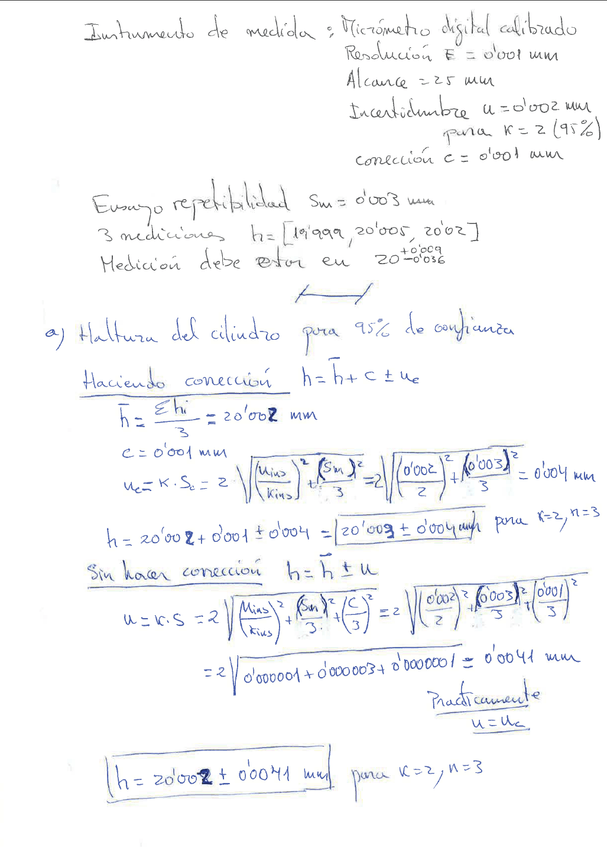 Instrumento de medida : Micrómetro digital calibrado
Resolución E = 0'001 mm
Alcance = 25 mm
Incertidumbre u = 0'002 mm
para K = 2 (95%)
corrección c = 0'001 mm
Ensayo repetibilidad Sm = 0'003 mm
3 mediciones h = [19'999, 20'005, 20'02]
Medición debe estar en 20 +0'009 -0'036
a) Haltura del cilindro para 95% de confianza
Haciendo corrección h = h̄ + c ± uc
h̄ = Σhi/3 = 20'002 mm
c = 0'001 mm
uc = K · Sc = 2 √((uins/Kins)² + (Sm)²/3) = 2 √((0'002/2)² + (0'003)²/3) = 0'004 mm
h = 20'002 + 0'001 ± 0'004 = 20'003 ± 0'004 mm para K=2, n=3
Sin hacer corrección h = h̄ ± u
u = K · S = 2 √((uins/Kins)² + (Sm)²/3 + (c/3)²) = 2 √((0'002/2)² + (0'003)²/3 + (0'001/3)²)
= 2 √(0'000001 + 0'000003 + 0'0000001) = 0'0041 mm
Practicamente
u = uc
h = 20'002 ± 0'0041 mm para K=2, n=3